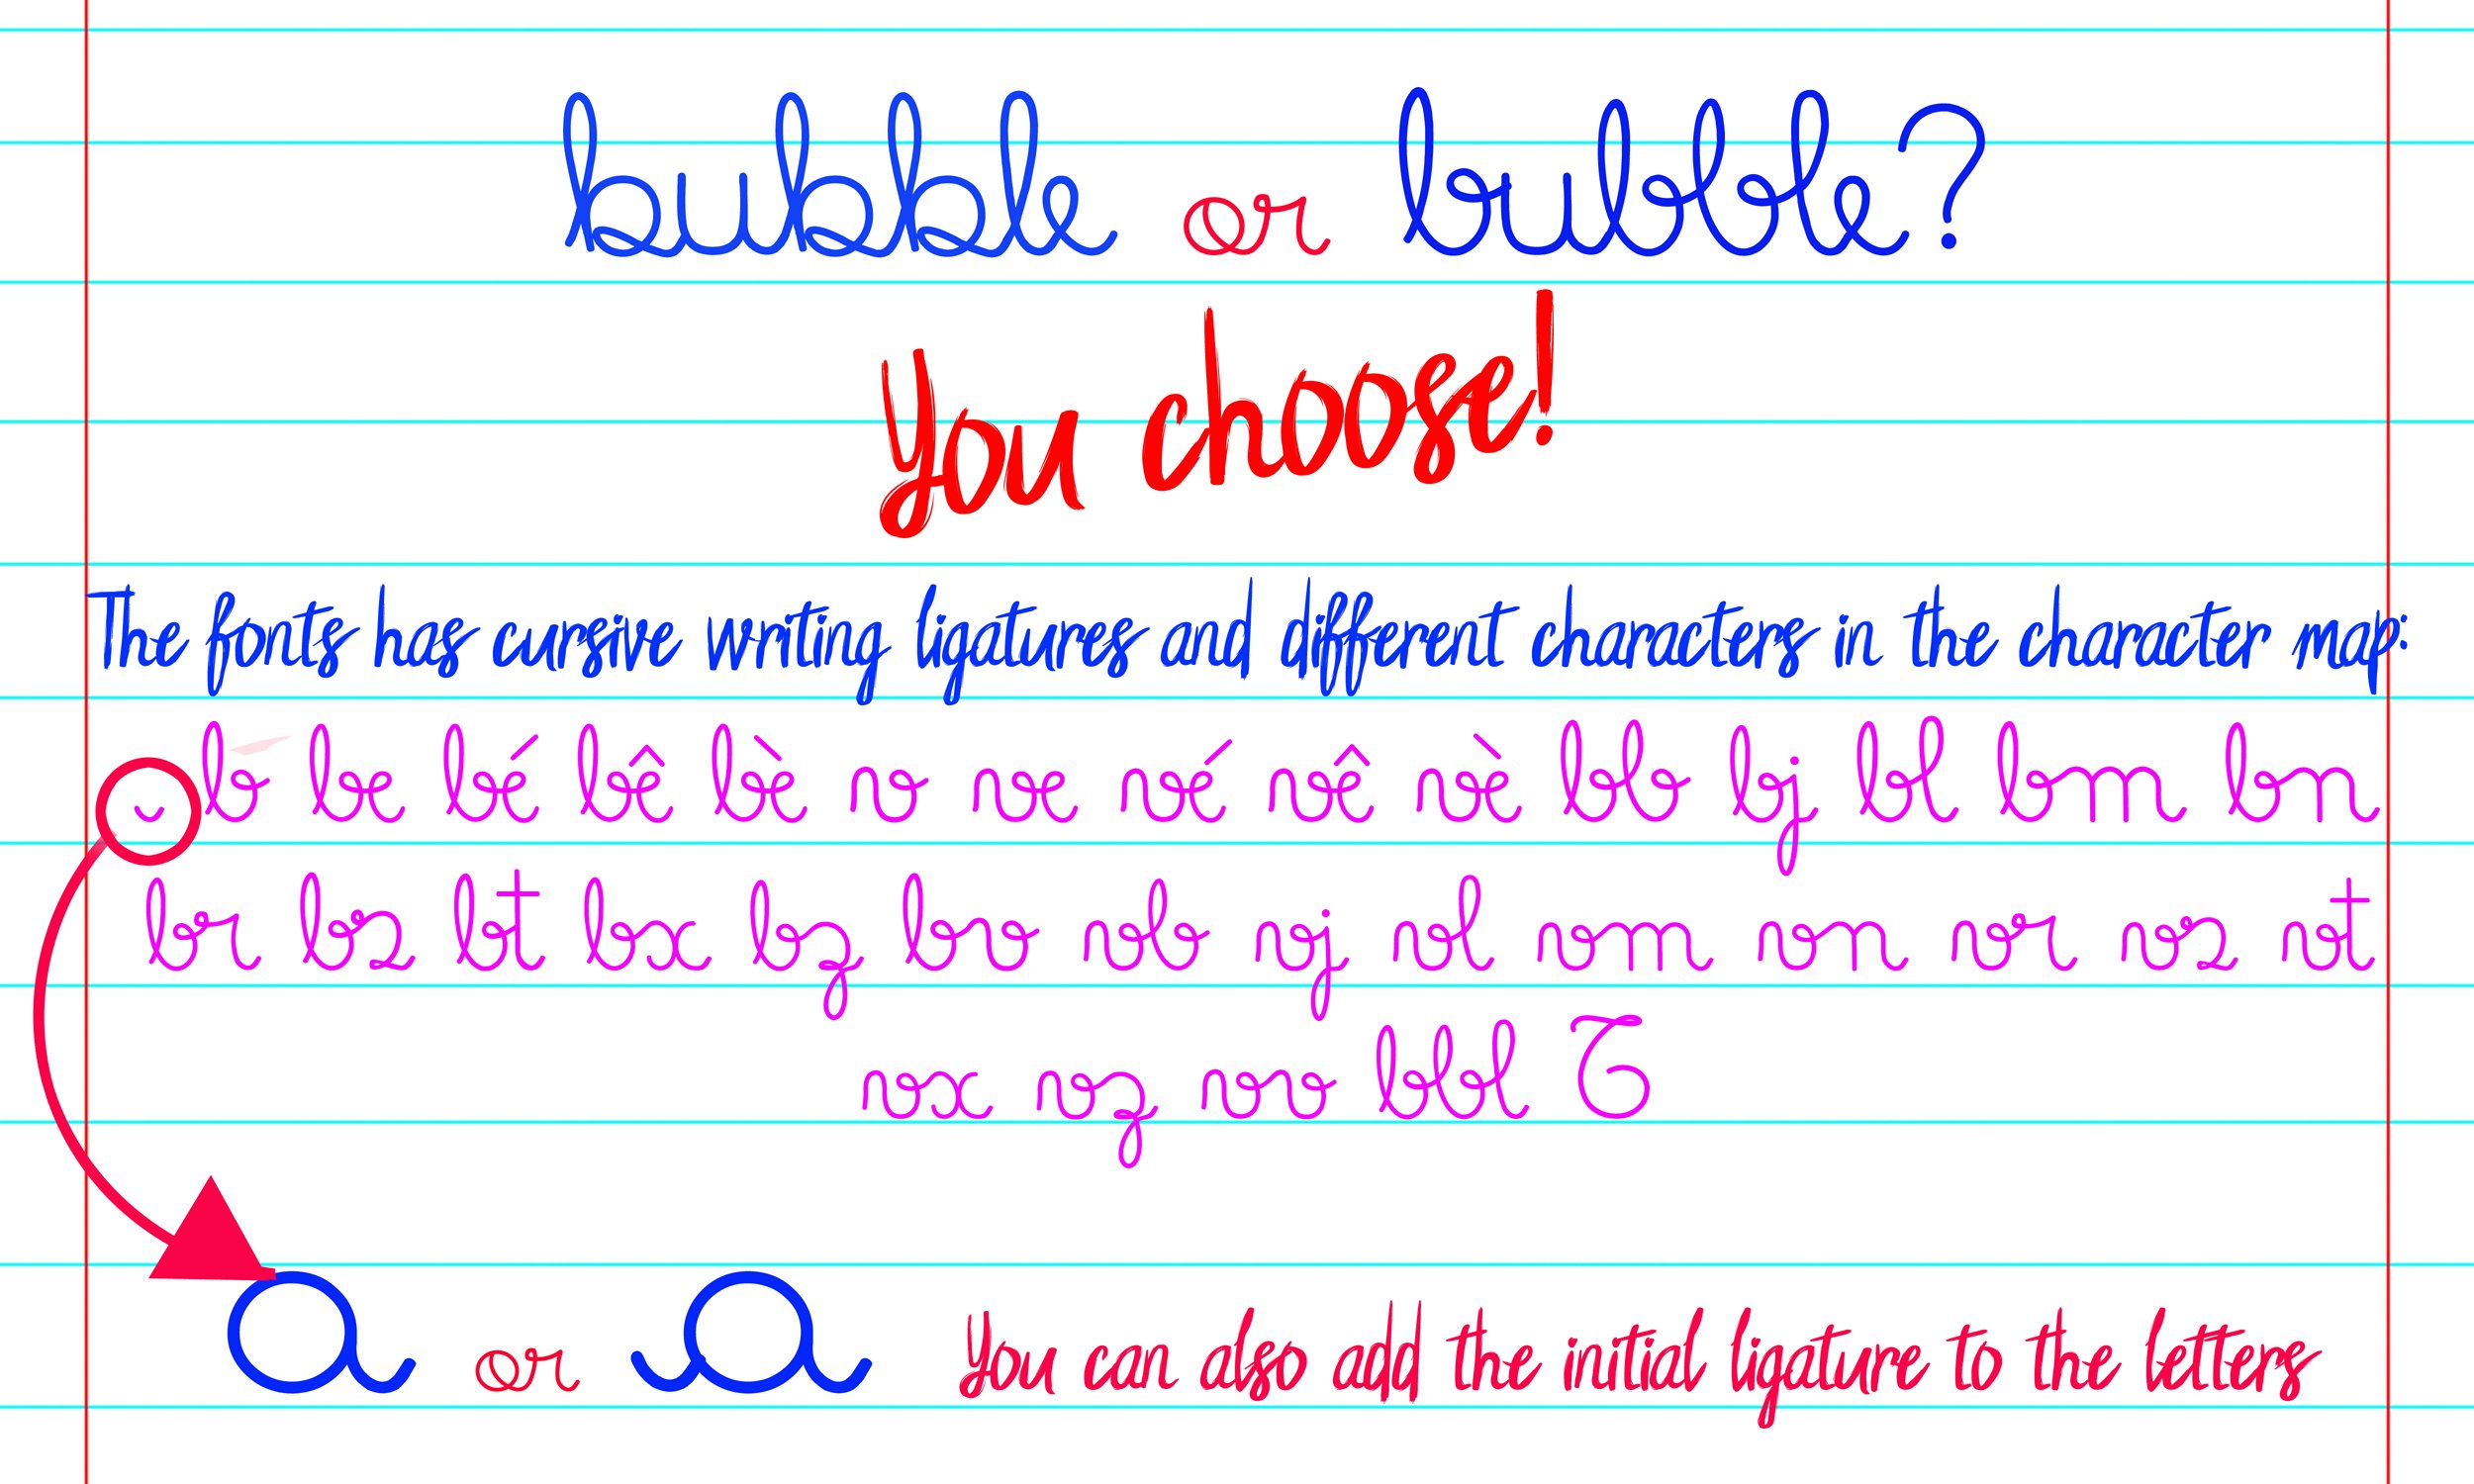 bubble or bubble?
You choose!
The fonts has cursive writing ligatures and different characters in the character map:
b be bé bê bè v ve vé vê vè bb bj bl bm bn
br bs bt bx bz bv vb vj vl vm vn vr vs vt
vx vz vv bbl T
a or a You can also add the initial ligature to the letters